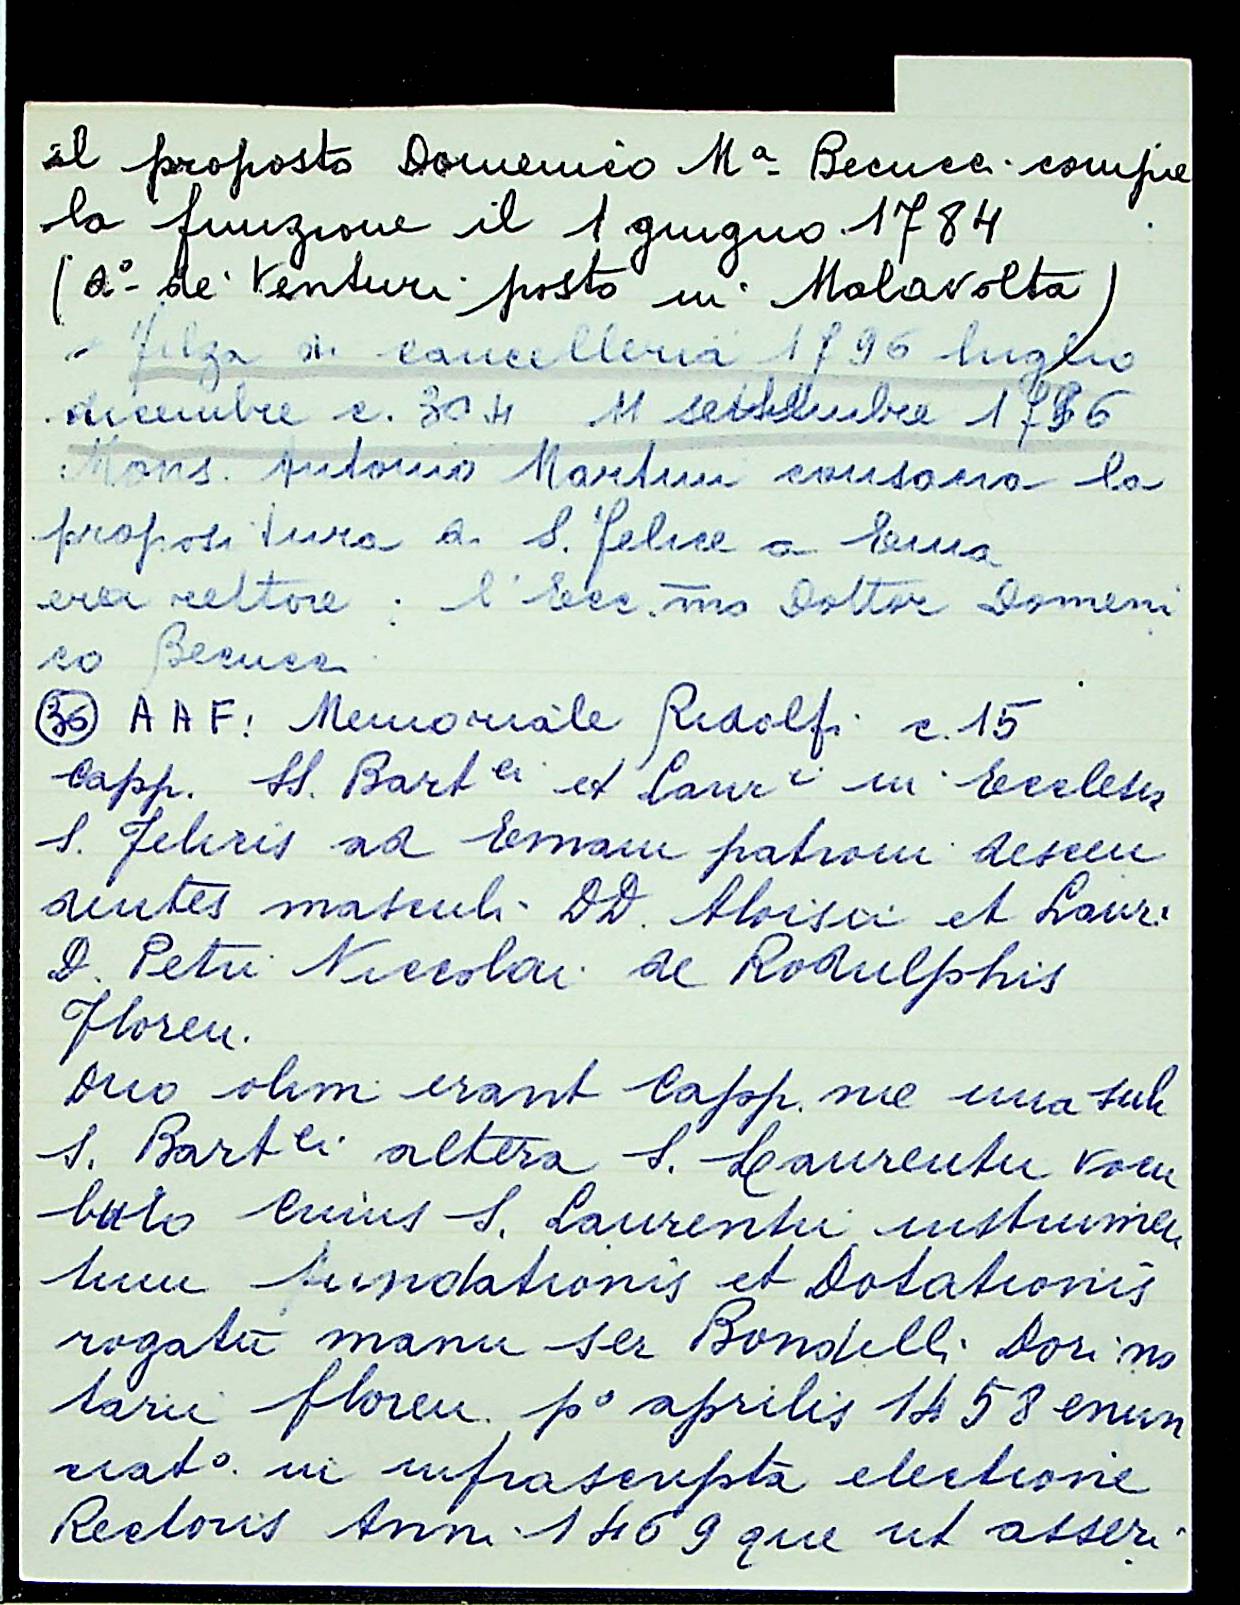 il proposto Domenico Mª Becucci compie
la funzione il 1 giugno 1784
(d.º de' Venturi posto in Malavolta)
- Filza di cancelleria 1796 luglio
dicembre c. 304 11 settembre 1796
Mons. Antonio Martini consacra la
propositura di S. Felice a Ema
era rettore: l'Ecc.mo Dottor Domeni
co Becucci
(36) AAF: Memoriale Ridolfi c. 15
Capp. SS. Bartei et Lauri in Ecclesia
S. Felicis ad Emam patroni descen
dentes masculi DD. Aloisii et Lauri
D. Petri Niccolai de Rodulphis
Floren.
Duo olim erant Capp.ne una sub
S. Bartei altera S. Laurentii voca
bulo cuius S. Laurentii instrumen
tum fundationis et Dotationis
rogatū manu ser Bondelli Dori no
tarii floren. pº aprilis 1458 enun
ciatº in infrascripta electione
Rectoris Anni 1469 que ut asseri